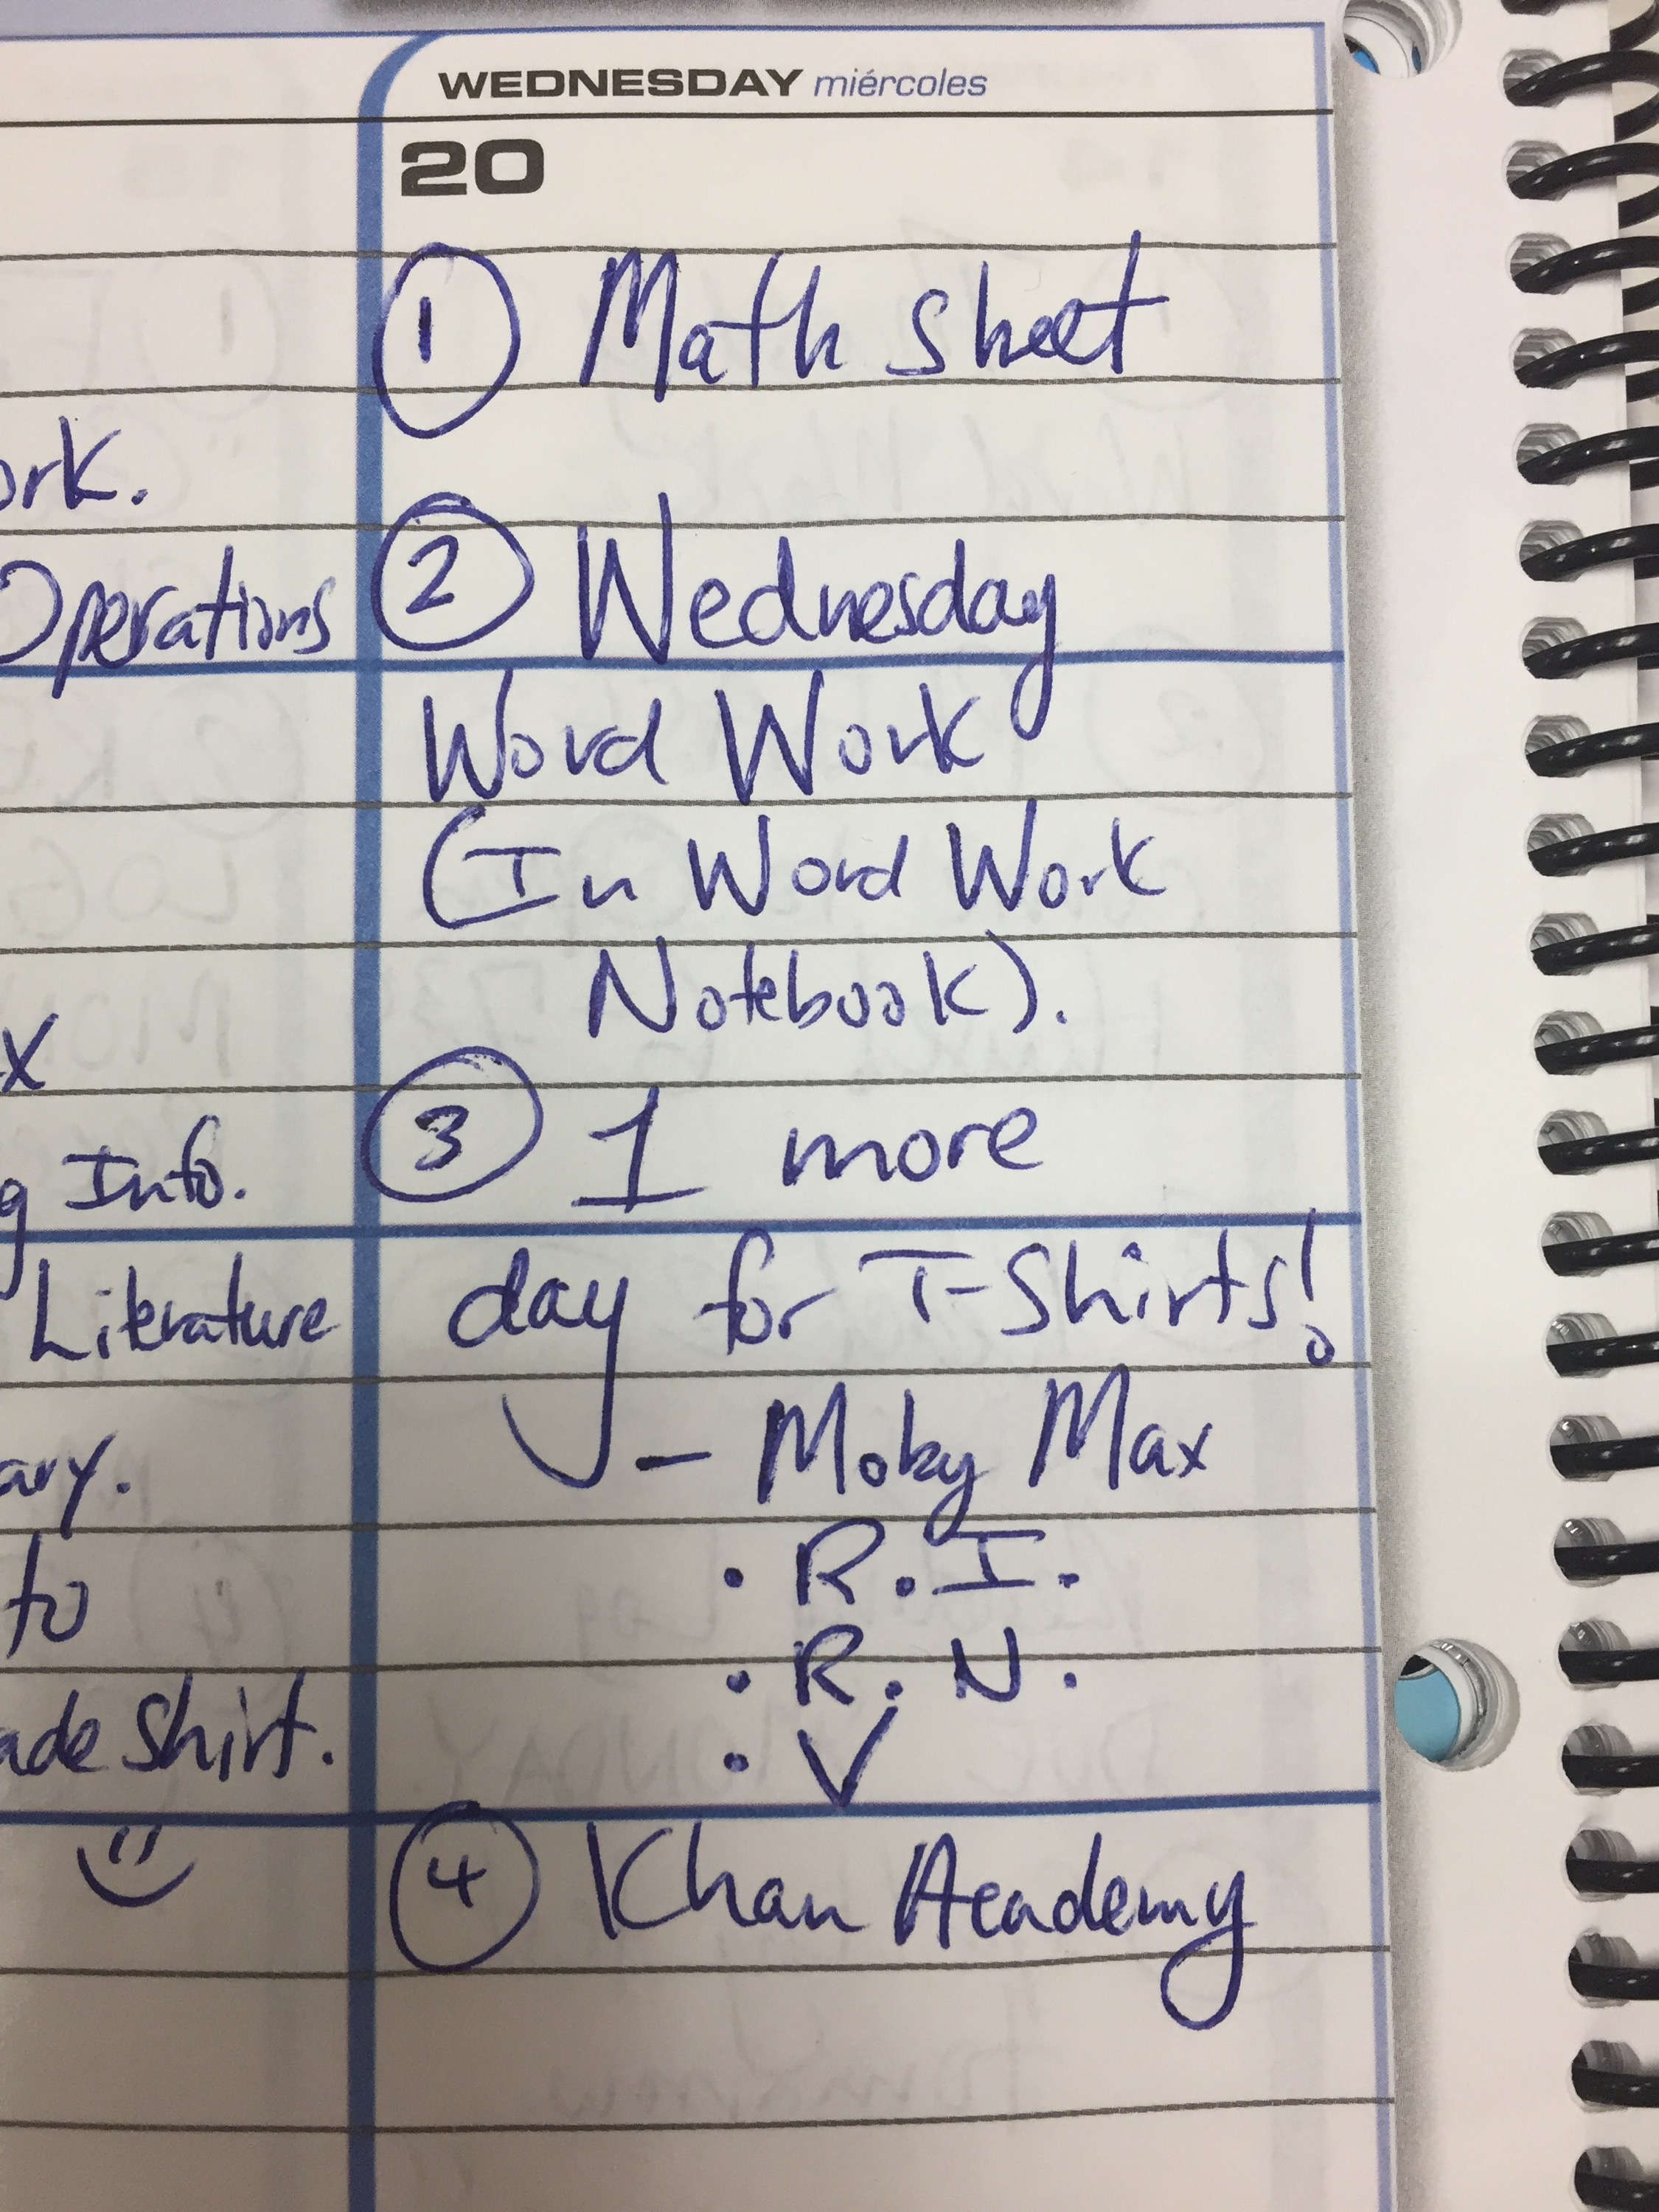 WEDNESDAY miércoles
20
① Math sheet
② Wednesday
Word Work
(In Word Work
Notebook).
③ 1 more
day for T-Shirts!
- Moby Max
• R.I.
• R.N.
• V
④ Khan Academy
Operations
Info.
Literature
to
Shirt.